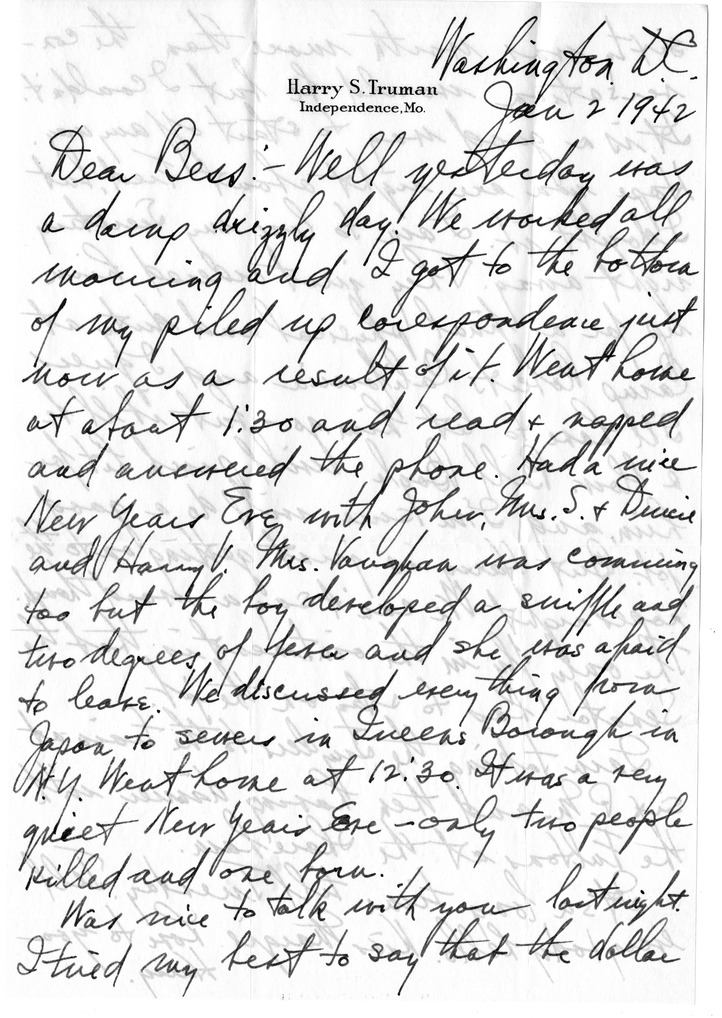 Washington, D.C.
Harry S. Truman
Independence, Mo.
Jan 2 1942
Dear Bess:- Well yesterday was
a damp drizzly day. We worked all
morning and I got to the bottom
of my piled up corespondence just
now as a result of it. Went home
at about 1:30 and read & napped
and answered the phone. Had a nice
New Years Eve with John, Mrs. S. &
and Harry V. Mrs. Vaughan was comming
too but the boy developed a sniffle and
two degrees of fever and she was afraid
to leave. We discussed everything from
Japan to sewers in Queens Borough in
N.Y. Went home at 12:30. It was a very
quiet New Years Eve - only two people
killed and one born.
Was nice to talk with you last night.
I tried my best to say that the dollar